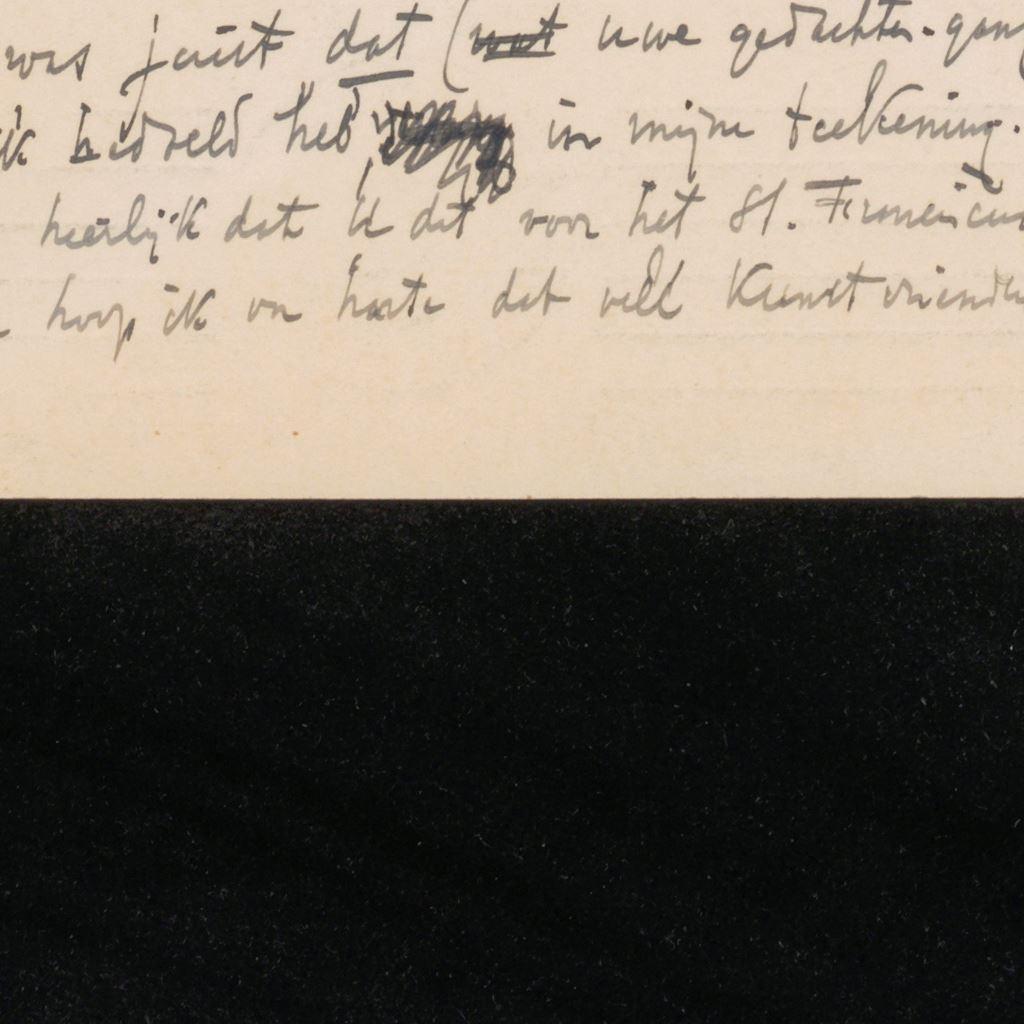 was juist dat (wat uwe gedachten-gang
ik bedoeld heb in mijne teekening.
heerlijk dat U dit voor het St. Franciscus
hoop ik van harte dat veel Kunstvriende